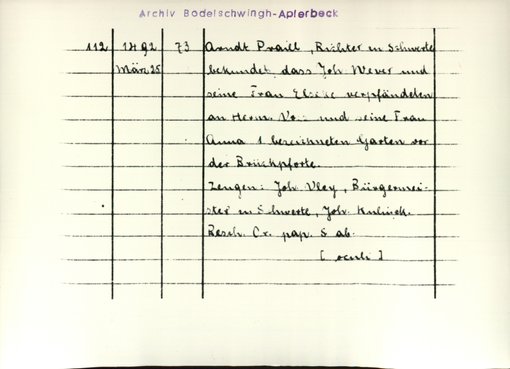 Archiv Bodelschwingh-Aplerbeck
112 1492 73 Arndt Praill, Richter in Schwerte
März 25 bekundet, dass Joh. Wever und
seine Frau verpfändeten
an Herm. und seine Frau
Anna 1 bezeichneten Garten vor
der Brückpforte.
Zeugen: Joh. Vley, Bürgermei-
ster in Schwerte, Joh.
Besch. Or. pap. S. ab.
[oculi]